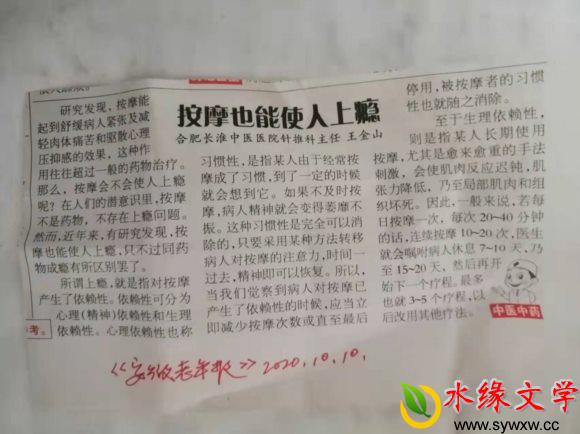 按摩也能使人上瘾
合肥长淮中医医院针推科主任 王金山
研究发现，按摩能
起到舒缓病人紧张及减
轻肉体痛苦和驱散心理
压抑感的效果，这种作
用往往超过一般的药物治疗。
那么，按摩会不会使人上瘾
呢？在人们的潜意识里，按摩
不是药物，不存在上瘾问题。
然而，近年来，有研究发现，按
摩也能使人上瘾，只不过同药
物成瘾有所区别罢了。
所谓上瘾，就是指对按摩
产生了依赖性。依赖性可分为
心理(精神)依赖性和生理
依赖性。心理依赖性也称
习惯性，是指某人由于经常按
摩成了习惯，到了一定的时候
就会想到它。如果不及时按
摩，病人精神就会变得萎靡不
振。这种习惯性是完全可以消
除的，只要采用某种方法转移
病人对按摩的注意力，时间一
过去，精神即可以恢复。所以，
当我们觉察到病人对按摩已
产生了依赖性的时候，应当立
即减少按摩次数或直至最后
停用，被按摩者的习惯
性也就随之消除。
至于生理依赖性，
则是指某人长期使用
按摩，尤其是愈来愈重的手法
刺激，会使肌肉反应迟钝，肌
张力降低，乃至局部肌肉和组
织坏死。因此，一般来说，若每
日按摩一次，每次20~40分钟
的话，连续按摩10~20次，医生
就会嘱咐病人休息7~10天，乃
至15~20天，然后再开
始下一个疗程。最多
也就3~5个疗程，以
后改用其他疗法。
中医中药
考。
《安徽老年报》2020.10.10.
水缘文学
www.sywxw.cc